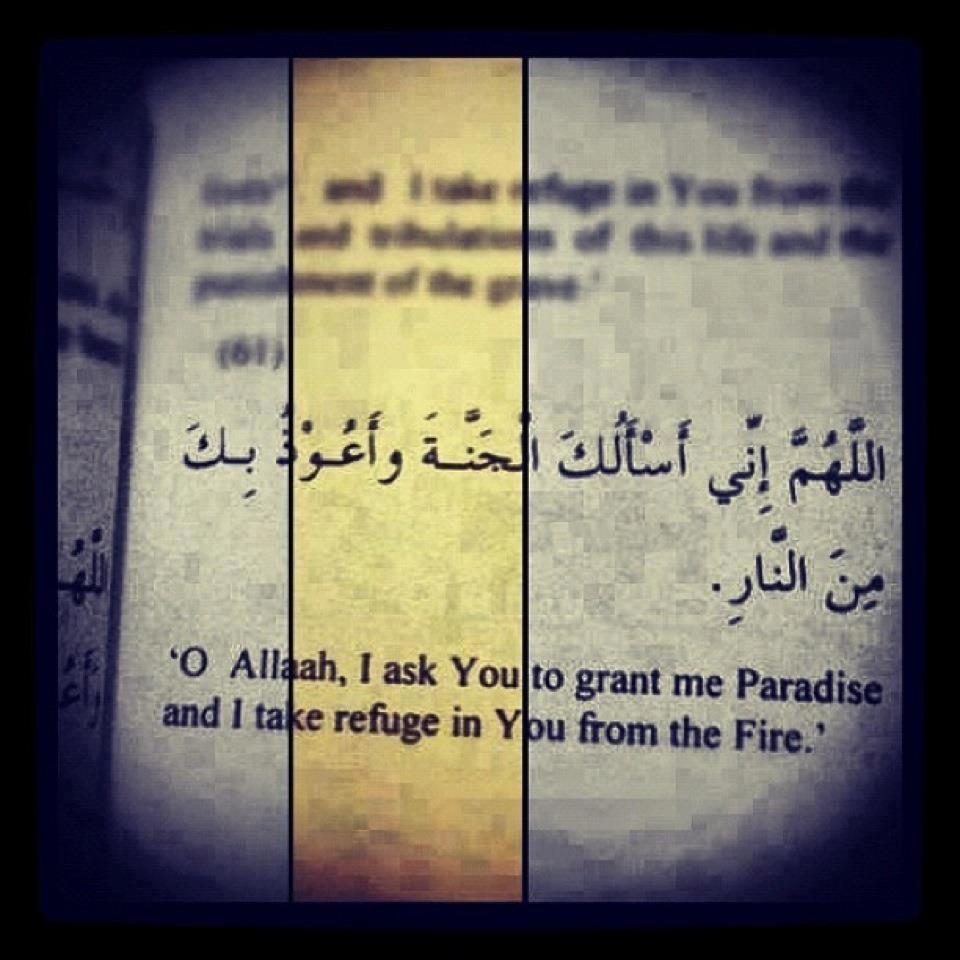 and I take refuge in You from the
trials and tribulations of this life and the
punishment of the grave.'
(61)
اللَّهُمَّ إِنِّي أَسْأَلُكَ الْجَنَّـةَ وأَعُـوْذُ بِـكَ
مِنَ النَّارِ.
‘O Allaah, I ask You to grant me Paradise
and I take refuge in You from the Fire.’